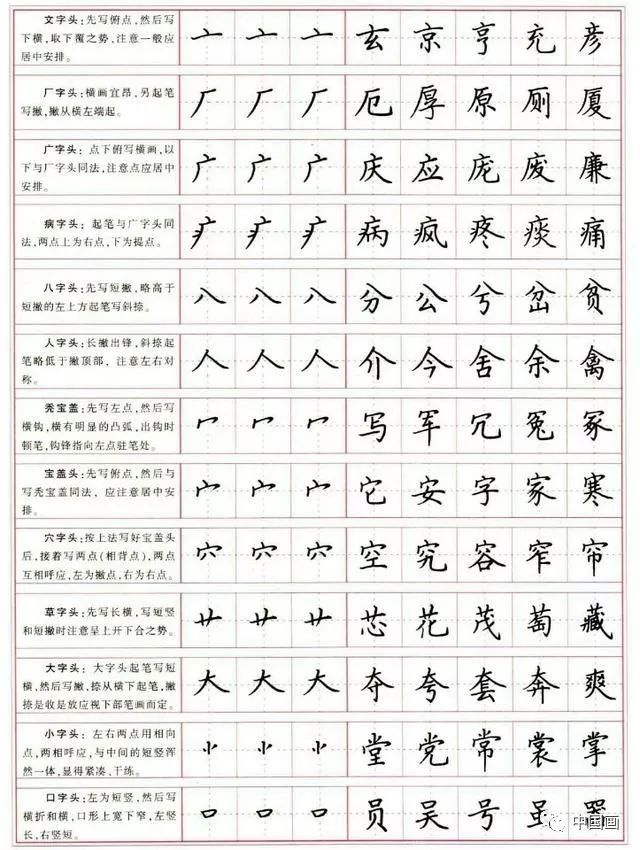 文字头:先写俯点,然后写
下横,取下覆之势,注意一般应
居中安排。
亠 亠 亠 玄 京 亨 充 彦
厂字头:横画宜昂,另起笔
写撇,撇从横左端起。
厂 厂 厂 厄 厚 原 厕 厦
广字头:点下俯写横画,以
下与厂字头同法,注意点应居中
安排。
广 广 广 庆 应 庞 废 廉
病字头:起笔与广字头同
法,两点上为右点,下为提点。
疒 疒 疒 病 疯 疼 痰 痛
八字头:先写短撇,略高于
短撇的左上方起笔写斜捺。
八 八 八 分 公 兮 岔 贫
人字头:长撇出锋,斜捺起
笔略低于撇顶部,注意左右对
称。
人 人 人 介 今 舍 余 禽
秃宝盖:先写左点,然后写
横钩,横有明显的凸弧,出钩时
顿笔,钩锋指向左点驻笔处。
冖 冖 冖 写 军 冗 冤 冢
宝盖头:先写俯点,然后与
写秃宝盖同法,应注意居中安
排。
宀 宀 宀 它 安 字 家 寒
穴字头:按上法写好宝盖头
后,接着写两点(相背点),两点
互相呼应,左为撇点,右为右点。
穴 穴 穴 空 究 容 窄 帘
草字头:先写长横,写短竖
和短撇时注意呈上开下合之势。
艹 艹 艹 芯 花 茂 萄 藏
大字头:大字头起笔写短
横,然后写撇,捺从横下起笔,撇
捺是收是放应视下部笔画而定。
大 大 大 夺 夸 套 奔 爽
小字头:左右两点用相向
点,两相呼应,与中间的短竖浑
然一体,显得紧凑、干练。
⺌ ⺌ ⺌ 堂 党 常 裳 掌
口字头:左为短竖,然后写
横折和横,口形上宽下窄,左竖
长,右竖短。
口 口 口 员 吴 号 虽
中国画